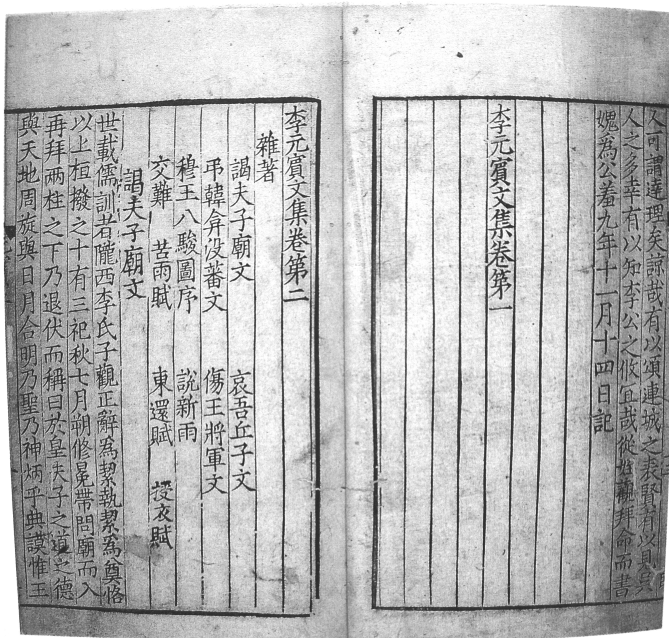 人可謂達理矣諒哉有以頌連城之表賢者以具
人之多幸有以知李公之攸宜哉從 觀拜命而書
媿為公羞九年十一月十四日記
李元賓文集卷第一
李元賓文集卷第二
雜著
謁夫子廟文 哀吾丘子文
弔韓弇没蕃文 傷王將軍文
穆王八駿圖序 說新雨
交難 苦雨賦 東還賦 授衣賦
謁夫子廟文
世載儒訓者隴西李氏子觀正辭為潔執潔為奠恪
以上桓撥之十有三祀秋七月朔修冕帶問廟而入
再拜两柱之下乃退伏而稱曰於皇夫子之道之德
與天地周旋與日月合明乃聖乃神炳乎典謨惟王